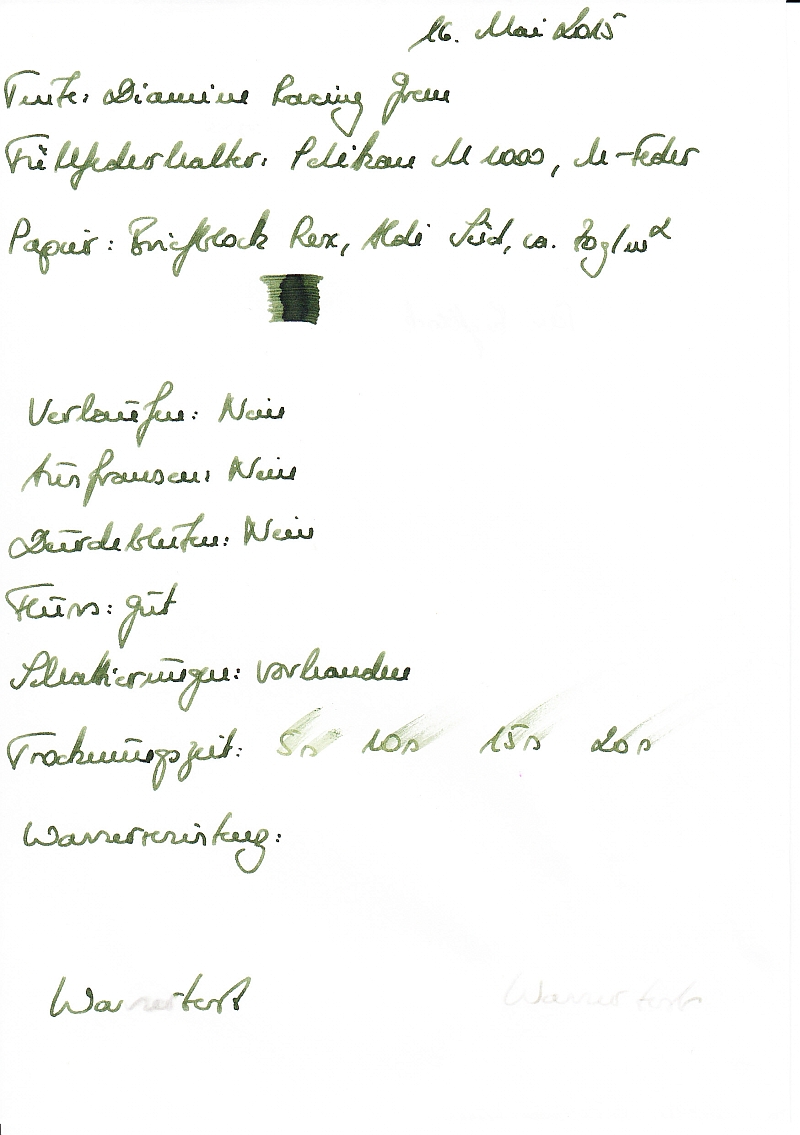 16. Mai 2015
Tinte: Diamine Racing Green
Füllfederhalter: Pelikan M 1000, M-Feder
Papier: Briefblock Rex, Aldi Süd, ca. 80g/m²
Verlaufen: Nein
Ausfransen: Nein
Durchbluten: Nein
Fluss: gut
Schattierungen: vorhanden
Trocknungszeit: 5s 10s 15s 20s
Wasserresistenz:
Wassertest Wassertest